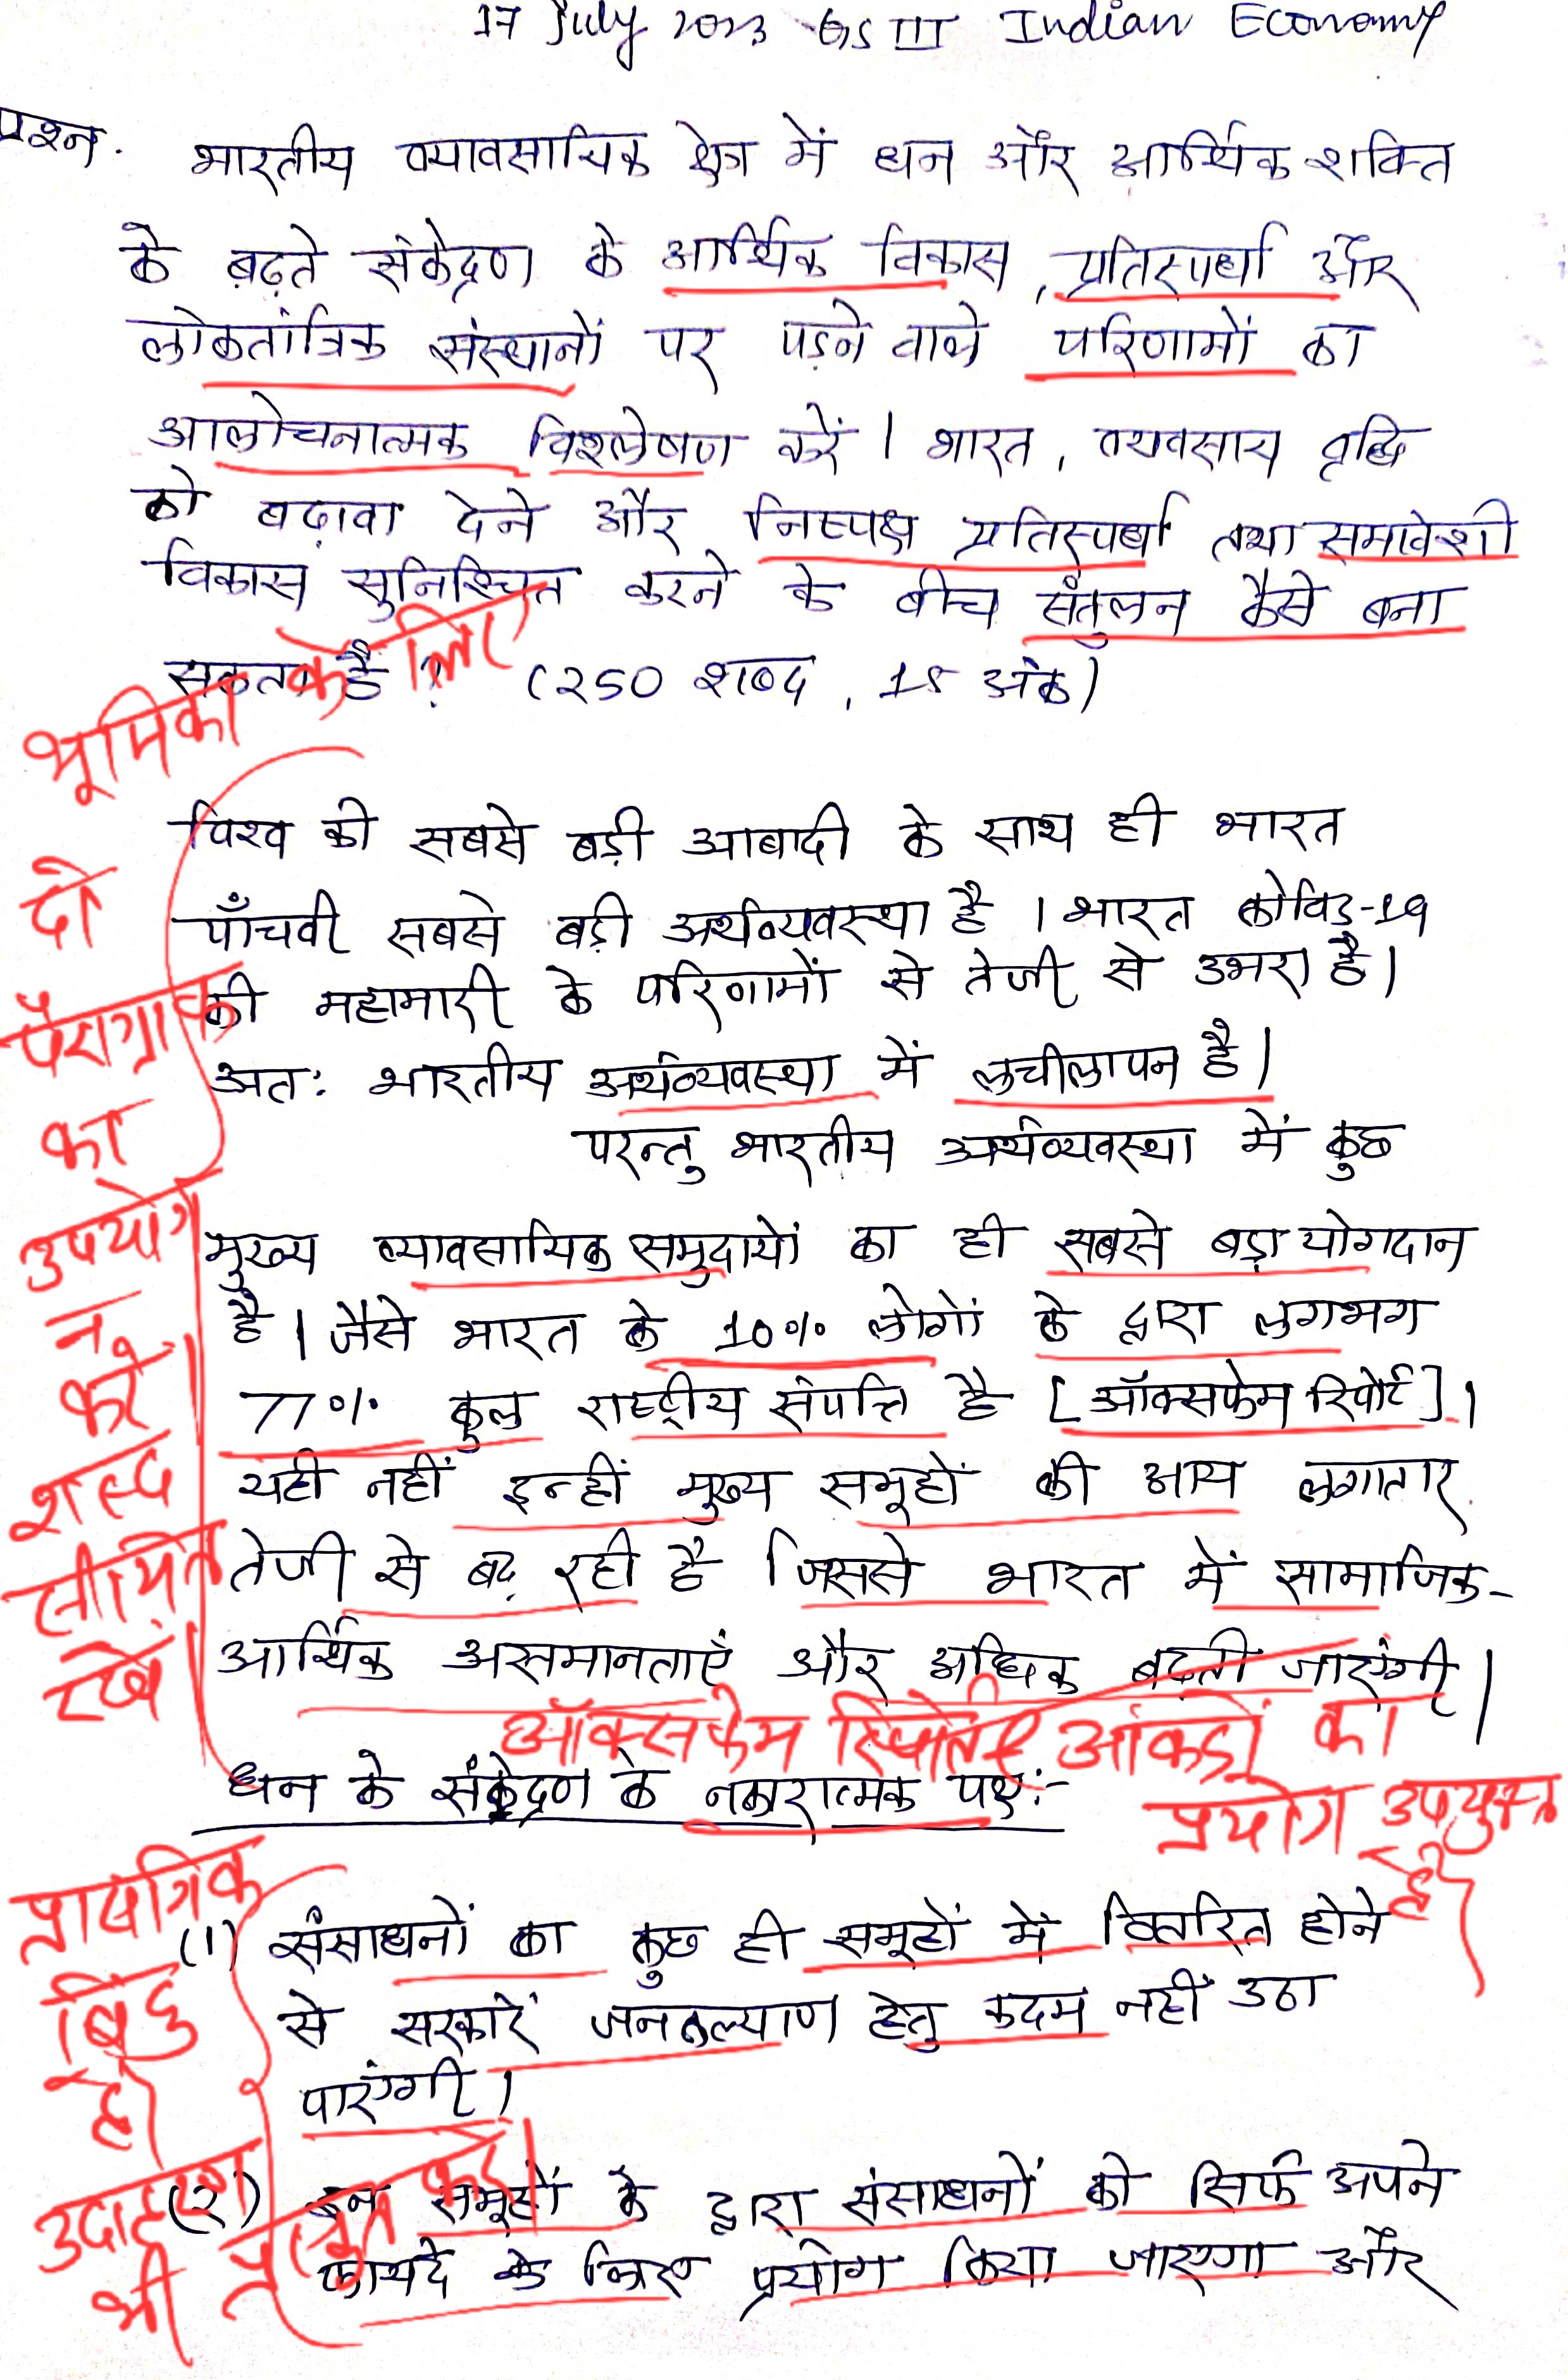 17 July 2023 GS III Indian Economy
प्रश्न. भारतीय व्यावसायिक क्षेत्र में धन और आर्थिक शक्ति
के बढ़ते संकेद्रण के आर्थिक विकास, प्रतिस्पर्धा और
लोकतांत्रिक संस्थानों पर पड़ने वाले परिणामों का
आलोचनात्मक विश्लेषण करें। भारत, व्यवसाय वृद्धि
को बढ़ावा देने और निष्पक्ष प्रतिस्पर्धा तथा समावेशी
विकास सुनिश्चित करने के बीच संतुलन कैसे बना
सकता है? (250 शब्द, 15 अंक)
भूमिका के लिए
दो
पैराग्राफ
का
उपयोग
न
करे
शब्द
सीमित
रखें
विश्व की सबसे बड़ी आबादी के साथ ही भारत
पाँचवी सबसे बड़ी अर्थव्यवस्था है। भारत कोविड-19
की महामारी के परिणामों से तेजी से उभरा है।
अतः भारतीय अर्थव्यवस्था में लचीलापन है।
परन्तु भारतीय अर्थव्यवस्था में कुछ
मुख्य व्यावसायिक समुदायों का ही सबसे बड़ा योगदान
है। जैसे भारत के 10% लोगों के द्वारा लगभग
77% कुल राष्ट्रीय संपत्ति है [ऑक्सफेम रिपोर्ट]।
यही नहीं इन्हीं मुख्य समूहों की आय लगातार
तेजी से बढ़ रही है जिससे भारत में सामाजिक-
आर्थिक असमानताएँ और अधिक बढ़ती जाएंगी।
ऑक्सफेम रिपोर्ट आंकड़ों का
प्रयोग उपयुक्त
है
धन के संकेद्रण के नकारात्मक पक्ष:-
प्राथमिक
बिंदु
है
(1) संसाधनों का कुछ ही समूहों में वितरित होने
से सरकारें जनकल्याण हेतु कदम नहीं उठा
पाएंगी।
उदाहरण
भी प्रस्तुत करें।
(2) इन समूहों के द्वारा संसाधनों को सिर्फ अपने
फायदे के लिए प्रयोग किया जाएगा और